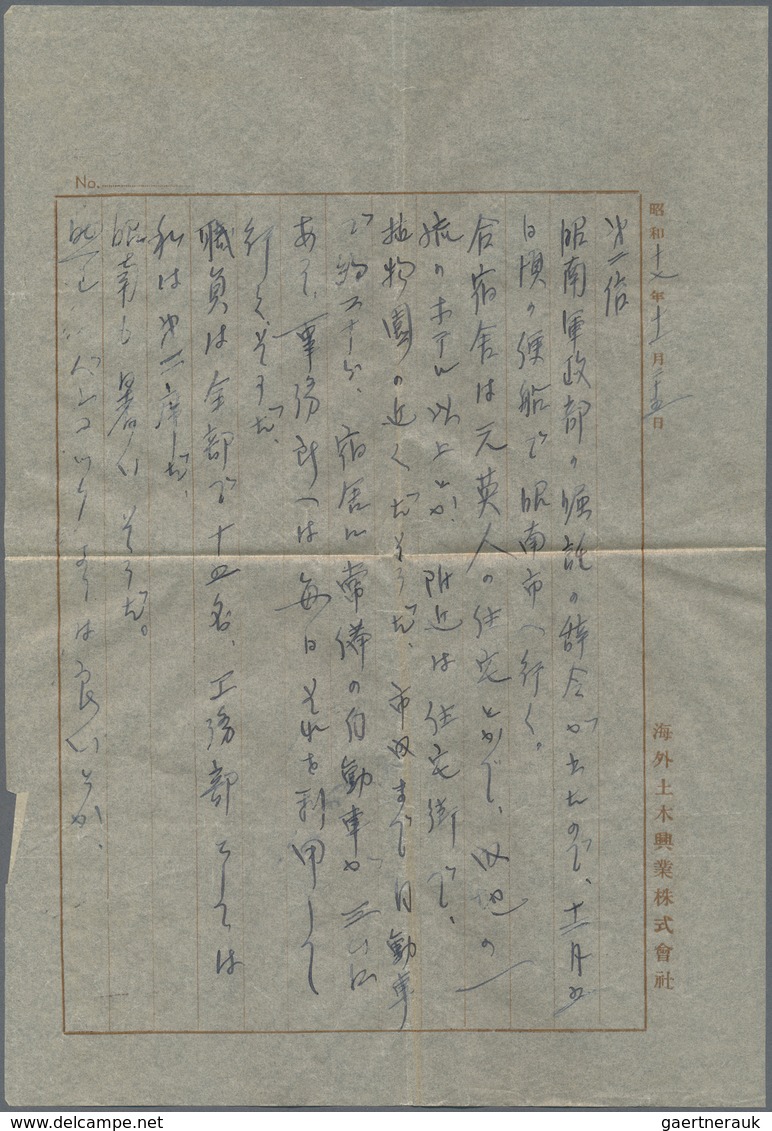 No.
昭和十七年十一月二十五日
海外土木興業株式會社
第一信
昭南軍政部の嘱託の辞令が出たので、十二月五
日頃の便船で昭南市へ行く。
合宿舎は元英人の住宅とかで、内地の一
流のホテル以上とか 附近は住宅街で、
植物園の近くだそうだ、市内まで自動車
で約二十分、宿舎に常備の自動車が三台
あり、事務所へは毎日それを利用して
行くそうだ、
職員は全部で十四名、工務部としては
私は第二席だ、
昭南も暑いそうだ。
よりは良いとか、
delcampe.net
gaertnerauk